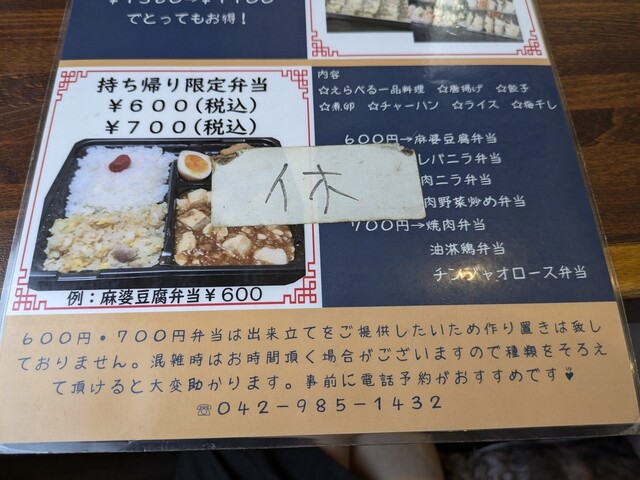 でとってもお得！
持ち帰り限定弁当
￥６００(税込)
￥７００(税込)
例：麻婆豆腐弁当￥600
内容
☆えらべる一品料理　☆唐揚げ　☆餃子
☆煮卵　☆チャーハン　☆ライス　☆梅干し
６００円→麻婆豆腐弁当
レバニラ弁当
肉ニラ弁当
肉野菜炒め弁当
７００円→焼肉弁当
油淋鶏弁当
チンジャオロース弁当
休
６００円・７００円弁当は出来立てをご提供したいため作り置きは致し
ておりません。混雑時はお時間頂く場合がございますので種類をそろえ
て頂けると大変助かります。事前に電話予約がおすすめです♥
☎０４２－９８５－１４３２